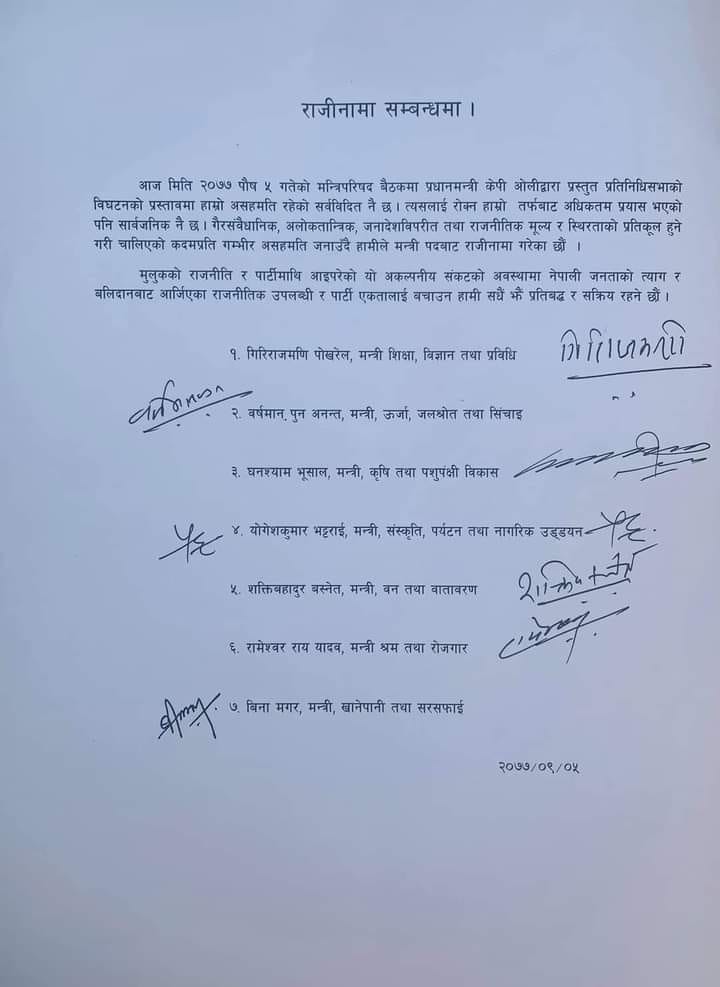 राजीनामा सम्बन्धमा ।
आज मिति २०७७ पौष ५ गतेको मन्त्रिपरिषद बैठकमा प्रधानमन्त्री केपी ओलीद्वारा प्रस्तुत प्रतिनिधिसभाको
विघटनको प्रस्तावमा हाम्रो असहमति रहेको सर्वविदित नै छ । त्यसलाई रोक्न हाम्रो तर्फबाट अधिकतम प्रयास भएको
पनि सार्वजनिक नै छ । गैरसंवैधानिक, अलोकतान्त्रिक, जनादेशविपरीत तथा राजनीतिक मूल्य र स्थिरताको प्रतिकूल हुने
गरी चालिएको कदमप्रति गम्भीर असहमति जनाउँदै हामीले मन्त्री पदबाट राजीनामा गरेका छौं ।
मुलुकको राजनीति र पार्टीमाथि आइपरेको यो अकल्पनीय संकटको अवस्थामा नेपाली जनताको त्याग र
बलिदानबाट आर्जिएका राजनीतिक उपलब्धी र पार्टी एकतालाई बचाउन हामी सधैं झैं प्रतिबद्ध र सक्रिय रहने छौं ।
१. गिरिराजमणि पोखरेल, मन्त्री शिक्षा, विज्ञान तथा प्रविधि गिरिराजमणी
२. वर्षमान पुन अनन्त, मन्त्री, ऊर्जा, जलश्रोत तथा सिंचाइ
३. घनश्याम भूसाल, मन्त्री, कृषि तथा पशुपंक्षी विकास
४. योगेशकुमार भट्टराई, मन्त्री, संस्कृति, पर्यटन तथा नागरिक उड्डयन
५. शक्तिबहादुर बस्नेत, मन्त्री, वन तथा वातावरण
६. रामेश्वर राय यादव, मन्त्री श्रम तथा रोजगार
७. बिना मगर, मन्त्री, खानेपानी तथा सरसफाई
२०७७/०९/०५